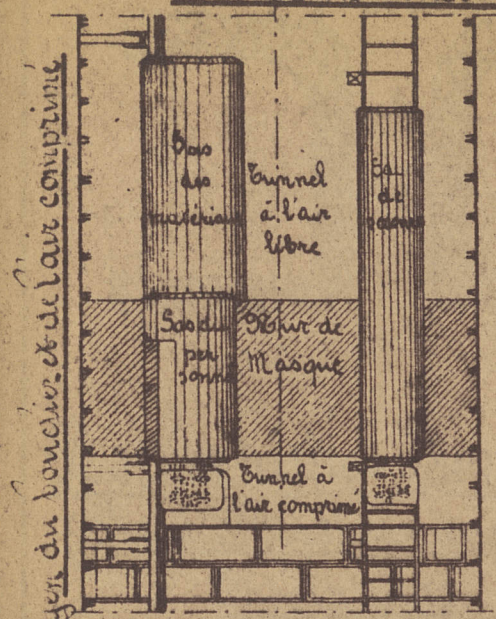 yen du bouclier et de l'air comprimé
Sas
des
matériaux
Tunnel
à l'air
libre
Sas
de
secours
Sas du
per
sonnel
Mur de
Masque
Tunnel à
l'air comprimé